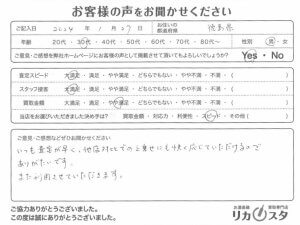 お客様の声をお聞かせください
ご記入日 2024年1月27日 お住いの都道府県 徳島県
年齢 20代・30代・40代・50代・60代・70代・80代〜 性別 男・女
ご意見・ご感想を弊社ホームページにお客様の声として掲載させて頂いてもよろしいでしょうか? Yes・No
査定スピード 大満足・満足・やや満足・どちらでもない・やや不満・不満
スタッフ接客 大満足・満足・やや満足・どちらでもない・やや不満・不満
買取金額 大満足・満足・やや満足・どちらでもない・やや不満・不満
当店をお選びいただきました決め手は? 買取金額・対応力・利便性・スピード・その他( )
ご意見・ご感想などぜひお聞かせください
いつも査定が早く、他店対比での上乗せにも快く応じていただけるので
ありがたいです。
また利用させていただきます。
ご協力ありがとうございました。
この度は誠にありがとうございました。
お酒直接 買取専門店
リカスタ